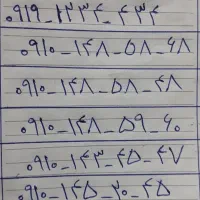 ۰۹۱۹_۱۲۳۴_۴۳۴
۰۹۱۰_۱۴۸_۵۸_۶۸
۰۹۱۰_۱۴۸_۵۸_۴۸
۰۹۱۰_۱۴۸_۵۹_۶۰
۰۹۱۰_۱۴۳_۴۵_۴۷
۰۹۱۰_۱۴۵_۲۰_۴۵